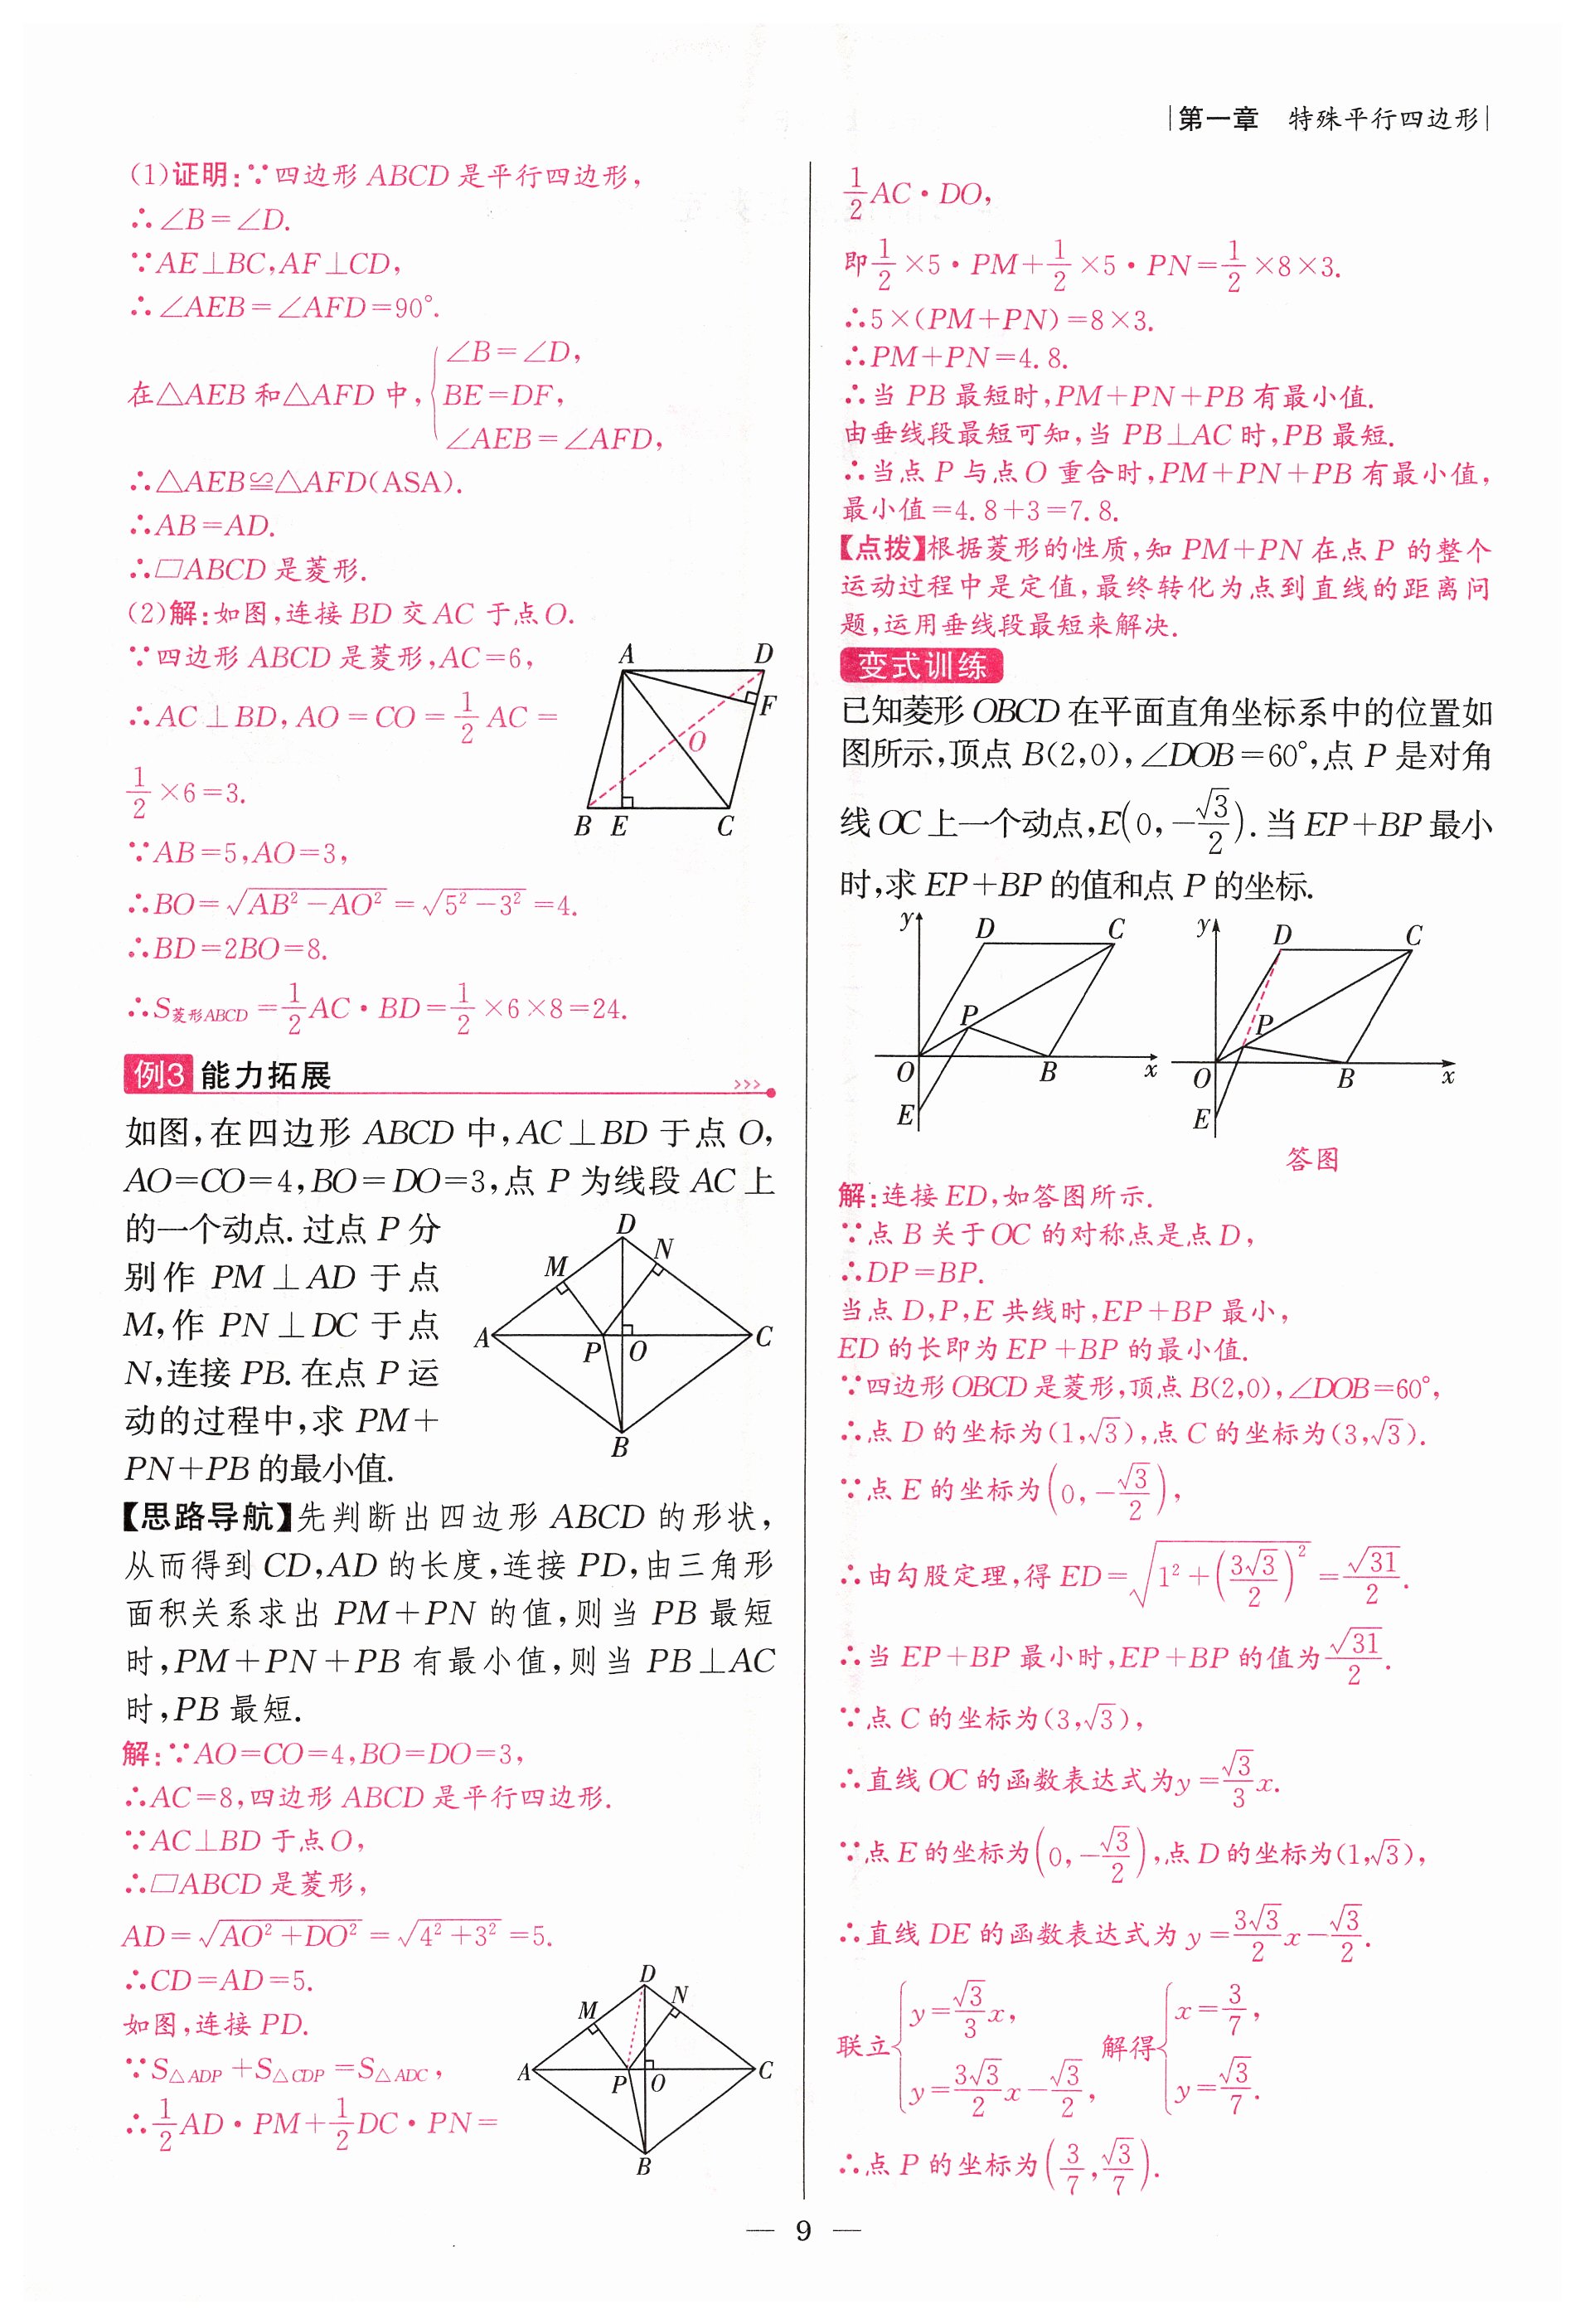 第一章 特殊平行四边形
(1)证明:∵四边形 ABCD 是平行四边形,
∴∠B=∠D.
∵AE⊥BC,AF⊥CD,
∴∠AEB=∠AFD=90°.
在△AEB 和△AFD 中,{∠B=∠D,
BE=DF,
∠AEB=∠AFD,
∴△AEB≌△AFD(ASA).
∴AB=AD.
∴▱ABCD 是菱形.
(2)解:如图,连接 BD 交 AC 于点 O.
∵四边形 ABCD 是菱形,AC=6,
∴AC⊥BD,AO=CO=1/2 AC=
1/2×6=3.
A D F O B E C
∵AB=5,AO=3,
∴BO=√(AB²-AO²)=√(5²-3²)=4.
∴BD=2BO=8.
∴S菱形ABCD=1/2AC·BD=1/2×6×8=24.
例3 能力拓展
如图,在四边形 ABCD 中,AC⊥BD 于点 O,
AO=CO=4,BO=DO=3,点 P 为线段 AC 上
的一个动点.过点 P 分
别作 PM⊥AD 于点
M,作 PN⊥DC 于点
N,连接 PB.在点 P 运
动的过程中,求 PM+
PN+PB 的最小值.
D N M A P O C B
【思路导航】先判断出四边形 ABCD 的形状,
从而得到 CD,AD 的长度,连接 PD,由三角形
面积关系求出 PM+PN 的值,则当 PB 最短
时,PM+PN+PB 有最小值,则当 PB⊥AC
时,PB 最短.
解:∵AO=CO=4,BO=DO=3,
∴AC=8,四边形 ABCD 是平行四边形.
∵AC⊥BD 于点 O,
∴▱ABCD 是菱形,
AD=√(AO²+DO²)=√(4²+3²)=5.
∴CD=AD=5.
如图,连接 PD.
∵S△ADP+S△CDP=S△ADC,
∴1/2AD·PM+1/2DC·PN=
D N M A P O C B
1/2AC·DO,
即1/2×5·PM+1/2×5·PN=1/2×8×3.
∴5×(PM+PN)=8×3.
∴PM+PN=4.8.
∴当 PB 最短时,PM+PN+PB 有最小值.
由垂线段最短可知,当 PB⊥AC 时,PB 最短.
∴当点 P 与点 O 重合时,PM+PN+PB 有最小值,
最小值=4.8+3=7.8.
【点拨】根据菱形的性质,知 PM+PN 在点 P 的整个
运动过程中是定值,最终转化为点到直线的距离问
题,运用垂线段最短来解决.
变式训练
已知菱形 OBCD 在平面直角坐标系中的位置如
图所示,顶点 B(2,0),∠DOB=60°,点 P 是对角
线 OC 上一个动点,E(0,-√3/2).当 EP+BP 最小
时,求 EP+BP 的值和点 P 的坐标.
y D C P O B x E
y D C P O B x E
答图
解:连接 ED,如答图所示.
∵点 B 关于 OC 的对称点是点 D,
∴DP=BP.
当点 D,P,E 共线时,EP+BP 最小,
ED 的长即为 EP+BP 的最小值.
∵四边形 OBCD 是菱形,顶点 B(2,0),∠DOB=60°,
∴点 D 的坐标为(1,√3),点 C 的坐标为(3,√3).
∵点 E 的坐标为(0,-√3/2),
∴由勾股定理,得 ED=√(1²+(3√3/2)²)=√31/2.
∴当 EP+BP 最小时,EP+BP 的值为√31/2.
∵点 C 的坐标为(3,√3),
∴直线 OC 的函数表达式为y=√3/3x.
∵点 E 的坐标为(0,-√3/2),点 D 的坐标为(1,√3),
∴直线 DE 的函数表达式为 y=3√3/2x-√3/2.
联立{y=√3/3x, y=3√3/2x-√3/2, 解得{x=3/7, y=√3/7.
∴点 P 的坐标为(3/7,√3/7).
— 9 —